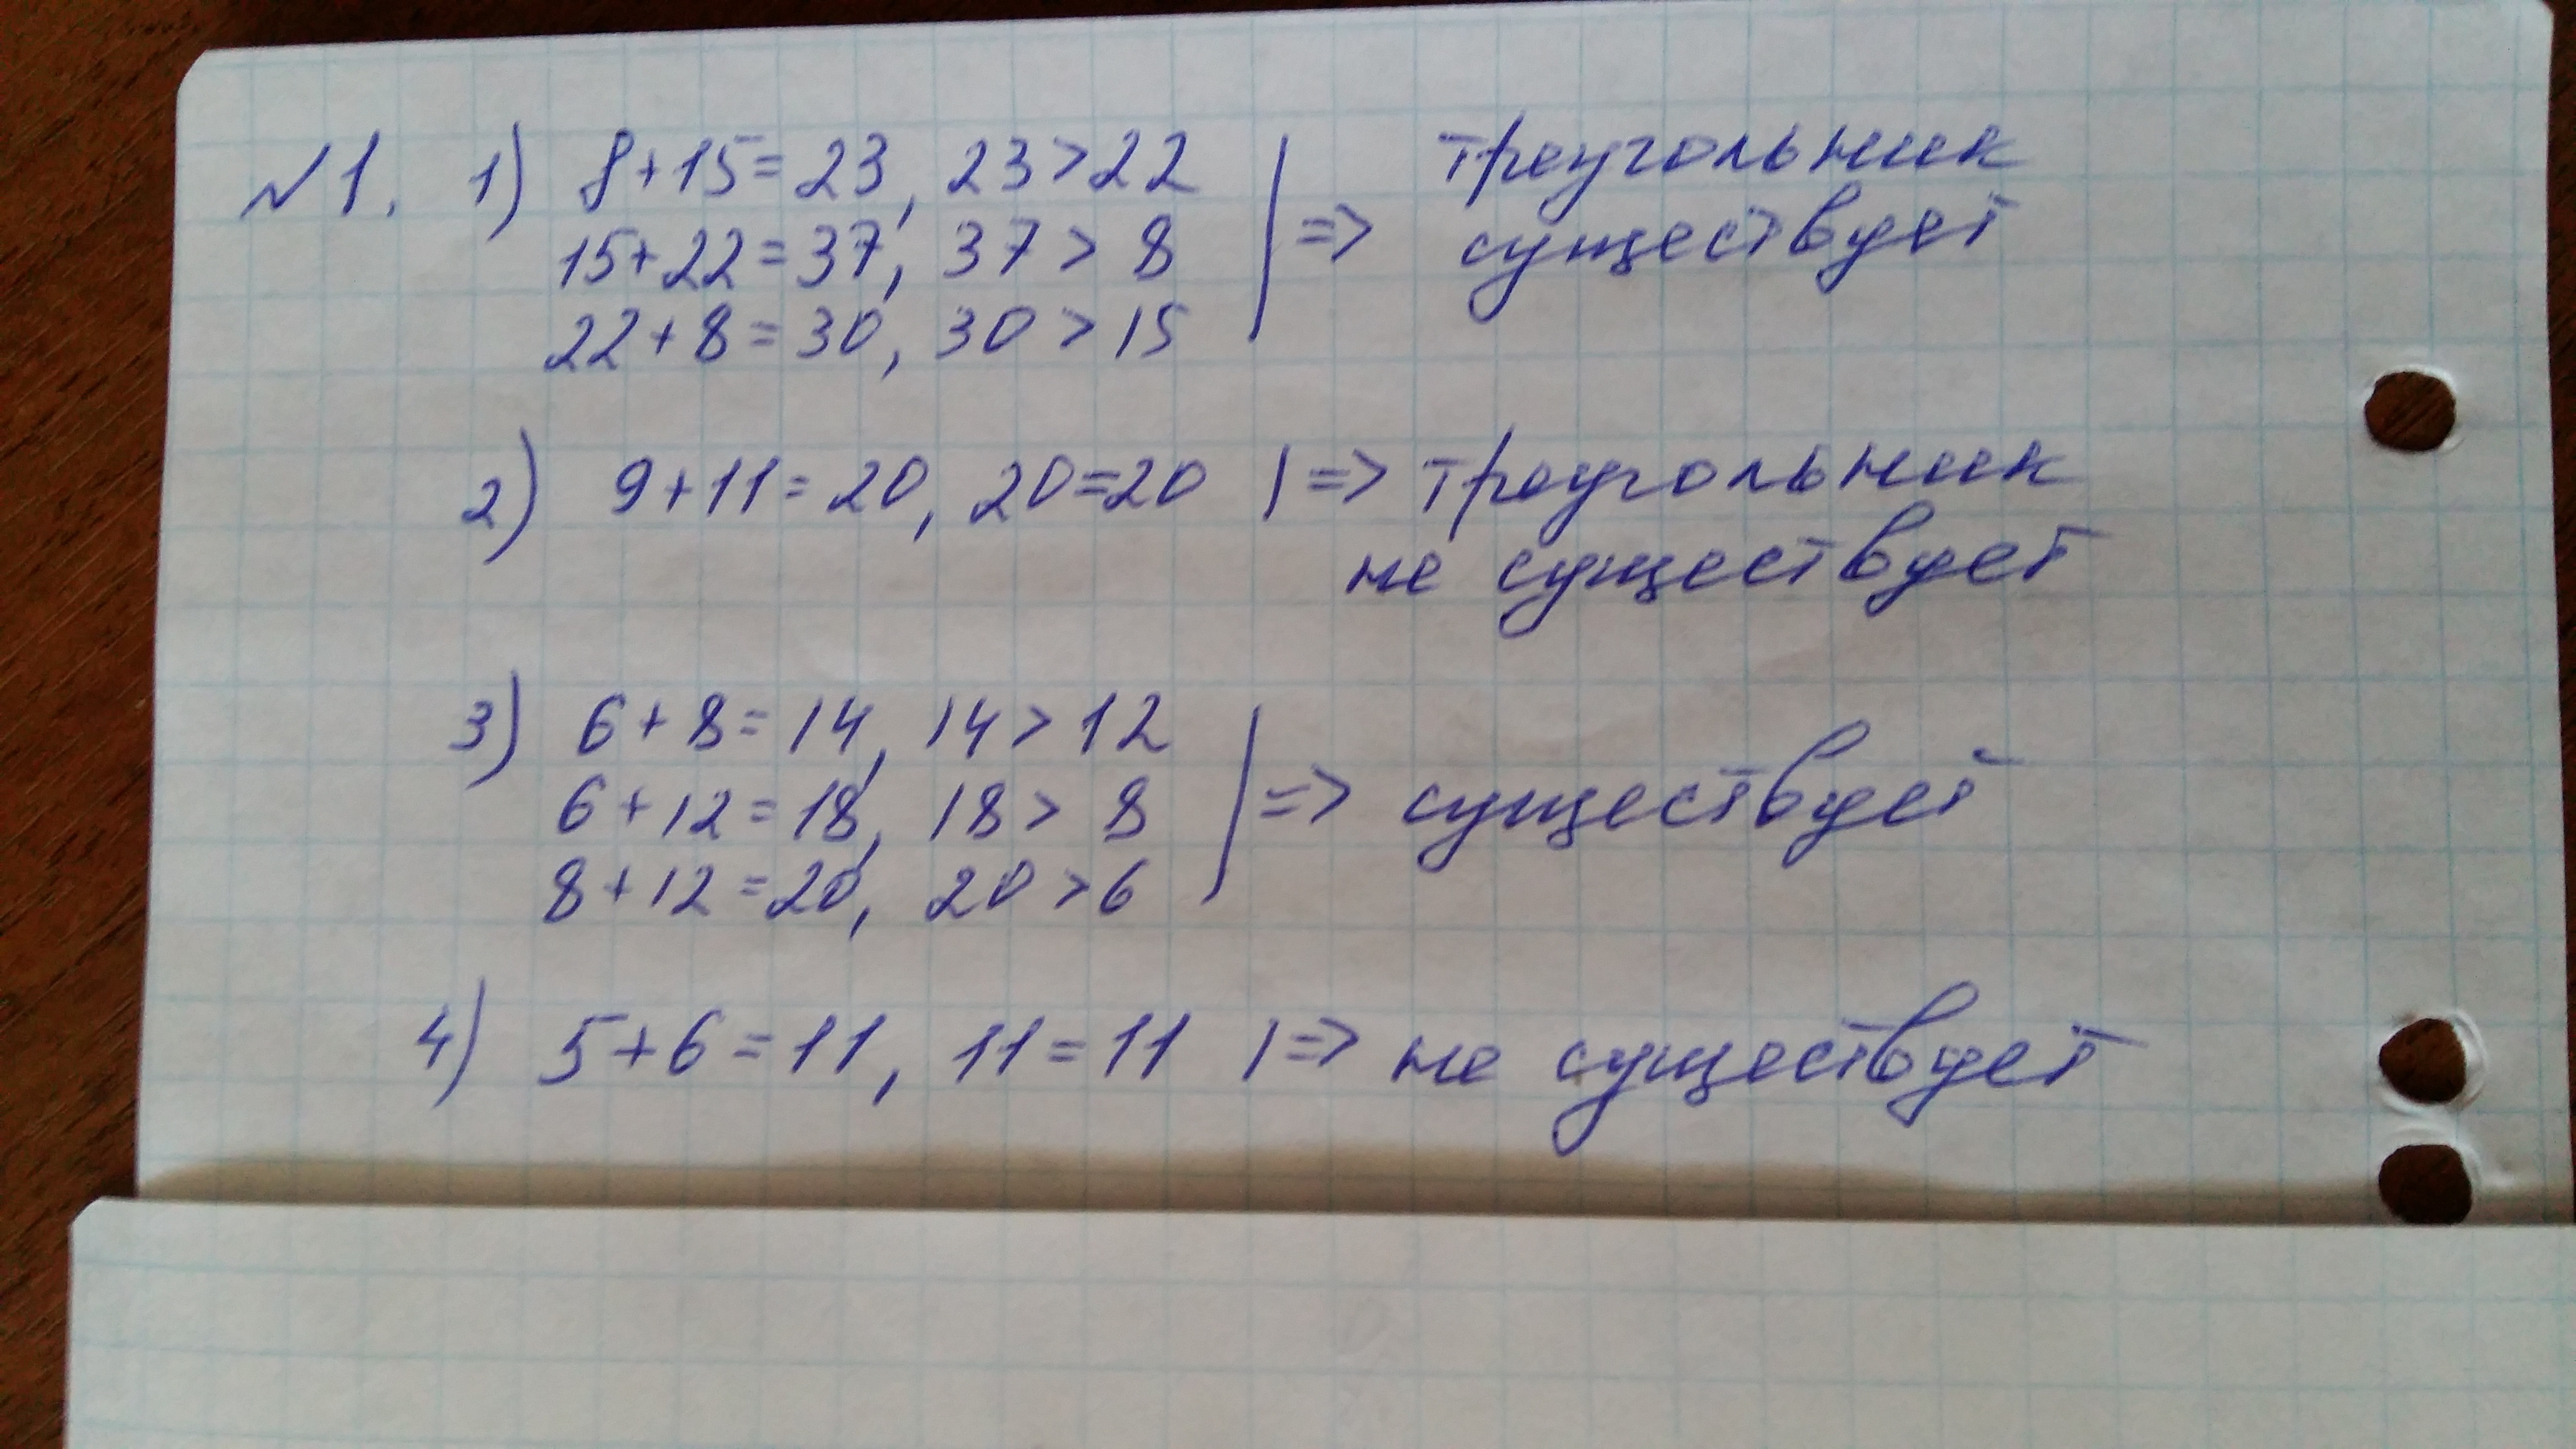 №1. 1) 8+15=23, 23>22 | => треугольник
15+22=37, 37>8 существует
22+8=30, 30>15
2) 9+11=20, 20=20 | => треугольник
не существует
3) 6+8=14, 14>12
6+12=18, 18>8 | => существует
8+12=20, 20>6
4) 5+6=11, 11=11 | => не существует